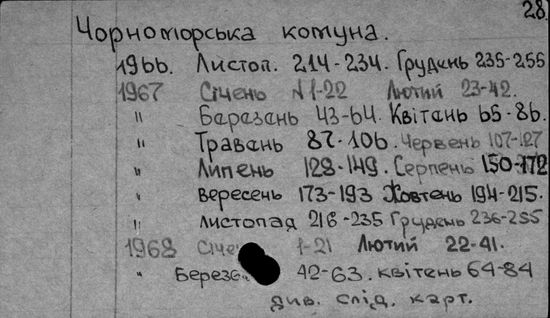 28
Чорноморська комуна.
1966. Листоп. 214-234. Грудень 235-255
1967 Січень N 1-22 Лютий 23-42.
" Березень 43-64. Квітень 65-86.
" Травень 87-106. Червень 107-127
" Липень 128-149. Серпень 150-172
" вересень 173-193 Жовтень 194-215.
" листопад 216-235 Грудень 236-255
1968 Січе 1-21 Лютий 22-41.
" Березе 42-63. квітень 64-84
див. слід. карт.